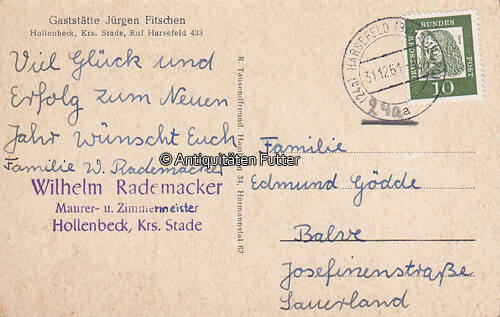 Gaststätte Jürgen Fitschen
Hollenbeck, Krs. Stade, Ruf Harsefeld 433
Viel Glück und
Erfolg zum Neuen
Jahr wünscht Euch
Familie W. Rademacker
Wilhelm Rademacker
Maurer- u. Zimmermeister
Hollenbeck, Krs. Stade
R. Tausendfreund, Hamburg 34, Hermannstal 62
(24a) HARSEFELD
31.12.61
a
DEUTSCHE BUNDESPOST
10
Familie
Edmund Gödde
Balve
Josefinenstraße
Sauerland
© Antiquitäten Futter